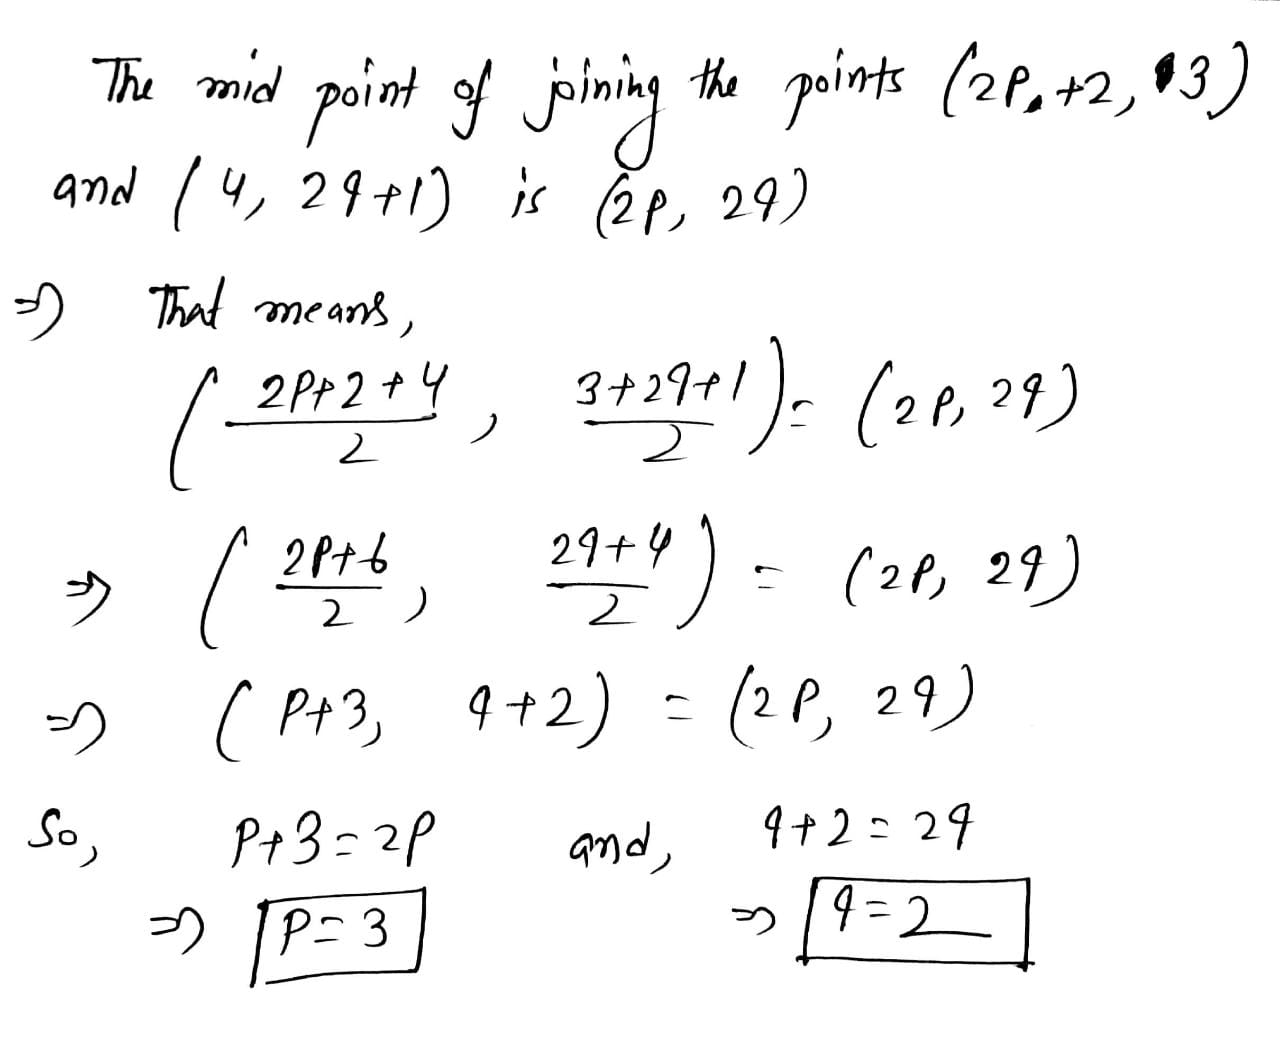 The mid point of joining the points (2P,+2, 3)
and (4, 2q+1) is (2P, 2q)
⇒) That means,
( 2P+2+4 / 2 , 3+2q+1 / 2 ) = (2P, 2q)
⇒ ( 2P+6 / 2 , 2q+4 / 2 ) = (2P, 2q)
⇒ ( P+3, q+2) = (2P, 2q)
So, P+3=2P and, q+2=2q
⇒ P=3 ⇒ q=2